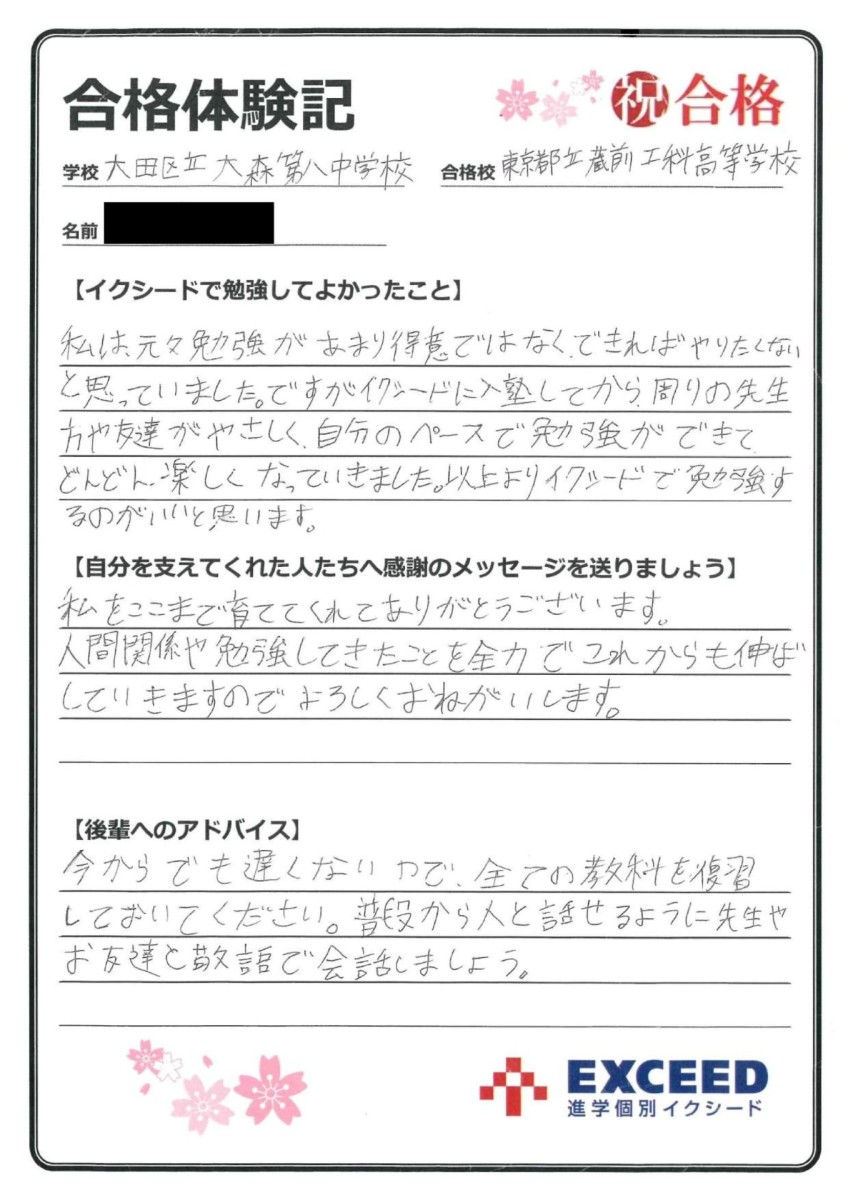 合格体験記
祝 合格
学校 大田区立大森第八中学校
合格校 東京都立蔵前工科高等学校
名前
【イクシードで勉強してよかったこと】
私は、元々勉強があまり得意ではなく、できればやりたくない
と思っていました。ですがイクシードに入塾してから、周りの先生
方や友達がやさしく、自分のペースで勉強ができて
どんどん楽しくなっていきました。以上よりイクシードで勉強す
るのがいいと思います。
【自分を支えてくれた人たちへ感謝のメッセージを送りましょう】
私をここまで育ててくれてありがとうございます。
人間関係や勉強してきたことを全力でこれからも伸ば
していきますのでよろしくおねがいします。
【後輩へのアドバイス】
今からでも遅くないので、全ての教科を復習
しておいてください。普段から人と話せるように先生や
お友達と敬語で会話しましょう。
EXCEED
進学個別イクシード